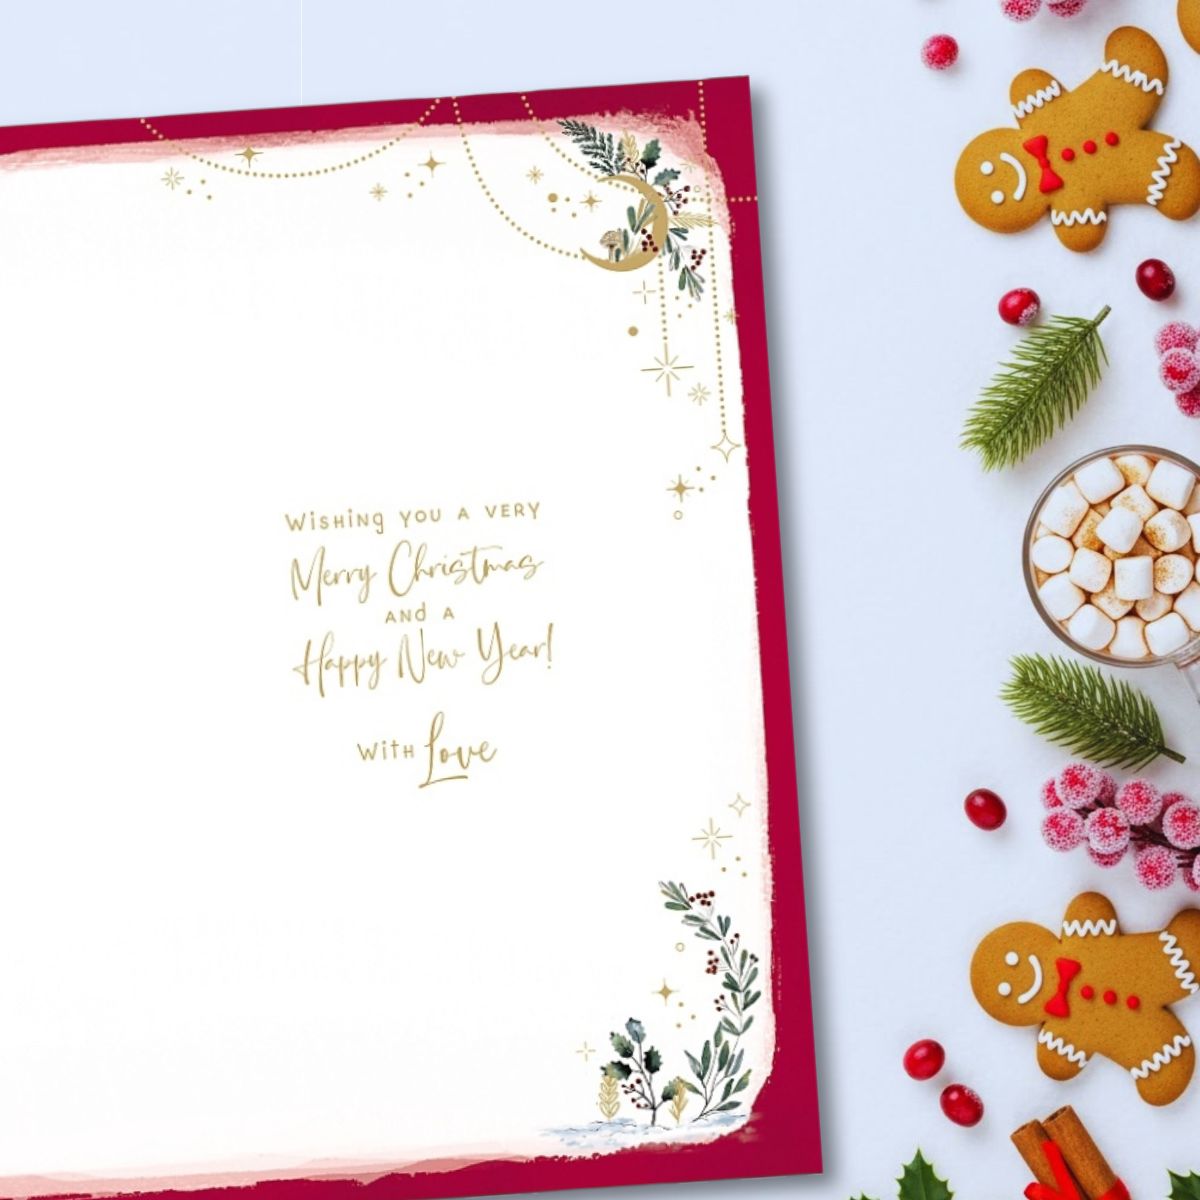 Wishing you a very
Merry Christmas
and a
Happy New Year!
With Love